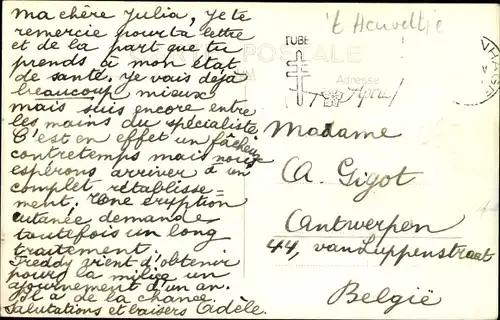 ma chère Julia, je te
remercie pour ta lettre
et de la part que tu
prends à mon état
de santé. je vais déjà
beaucoup mieux
mais suis encore entre
les mains du spécialiste.
C'est en effet un fâcheux
contretemps mais nous
espérons arriver à un
complet rétablisse=
ment. Une éruption
cutanée demande
toutefois un long
traitement.
Freddy vient d'obtenir
pour la milice un
ajournement d'un an.
Il a de la chance.
Salutations et baisers Adèle.
't Heuveltje
TUBE
POSTALE
Adresse
Madame
A. Gigot
Antwerpen
44, van Luppenstraat
België